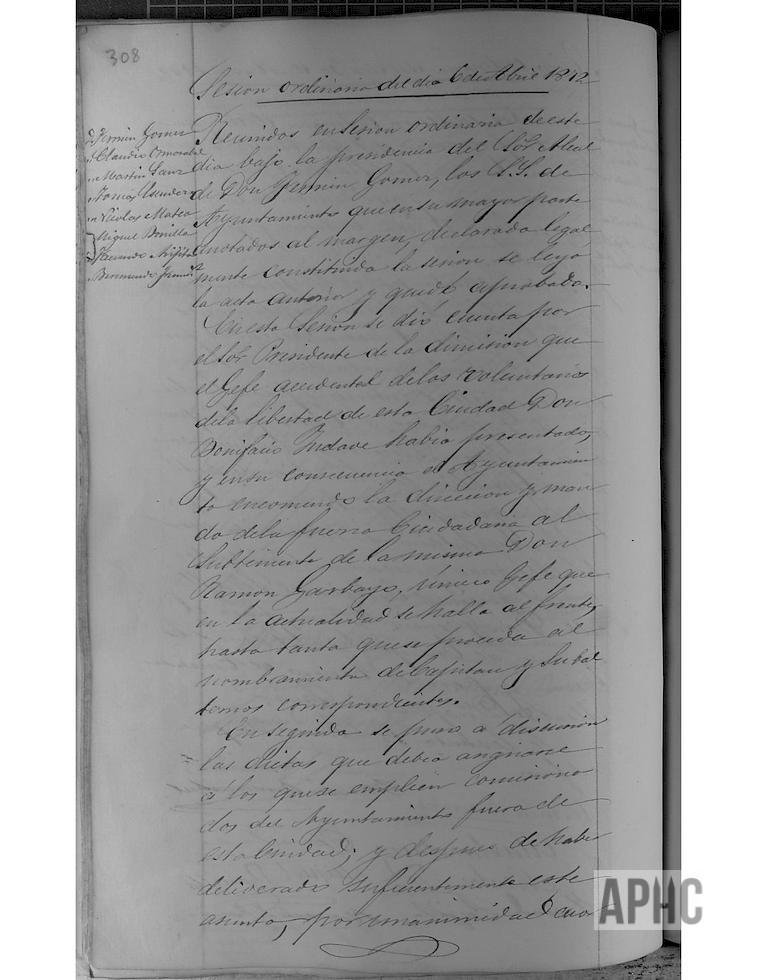 308
Sesion ordinaria del dia 6 de Abril 1872
D. Fermin Gomez
" Claudio
" Martin Sanz
" Tomas
" Nicolas Mateo
Miguel Bonilla
Facundo
Bermundo
Reunidos en Sesion ordinaria de este
dia bajo la presidencia del Sor. Alcal
de Don Fermin Gomez, los S.S. de
Ayuntamiento que en su mayor parte
anotados al margen, declarada legal
mente constituida la sesion se leyo
la acta anterior y quedó aprobada.
En esta Sesion se dió cuenta por
el Sor. Presidente de la dimision que
el Gefe accidental de los voluntarios
de la libertad de esta Ciudad Don
Bonifacio Indave habia presentado,
y en su consecuencia el Ayuntamien
to encomendó la direccion y man
do de la fuerza Ciudadana al
Subteniente de la misma Don
Ramon Garbayo, único Gefe que
en la actualidad se halla al frente,
hasta tanto que se proceda al
nombramiento de Capitan y Subal
ternos correspondientes.
En seguida se puso a discusion
las dietas que debia asignarse
a los que se empleen comisiona
dos del Ayuntamiento fuera de
esta Ciudad; y despues de haber
deliverado suficientemente este
asunto, por unanimidad acor
APHC